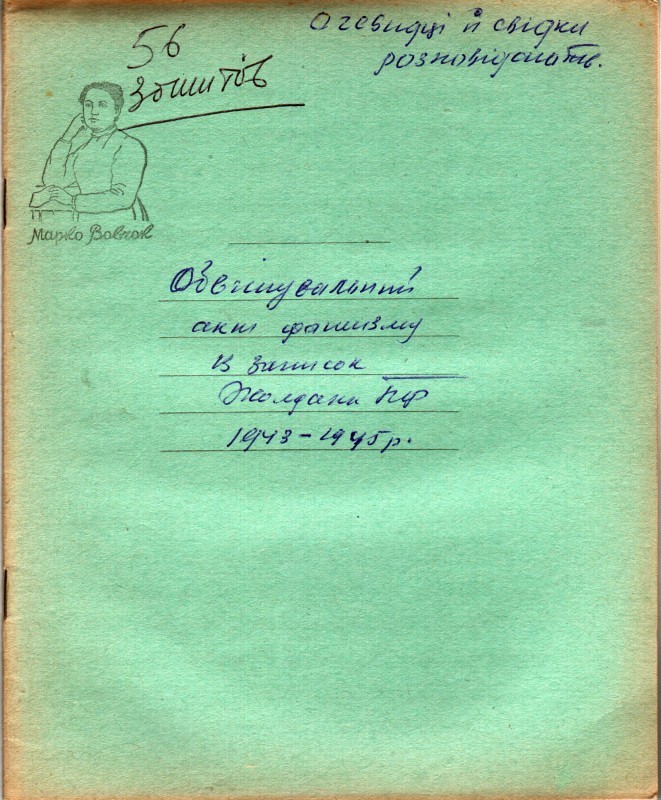 Очевидці й свідки
розповідають.
56
зошитів
Марко Вовчок
Обвинувальний
акт фашизму
із записок
Жолдака ПФ
1943-1945р.